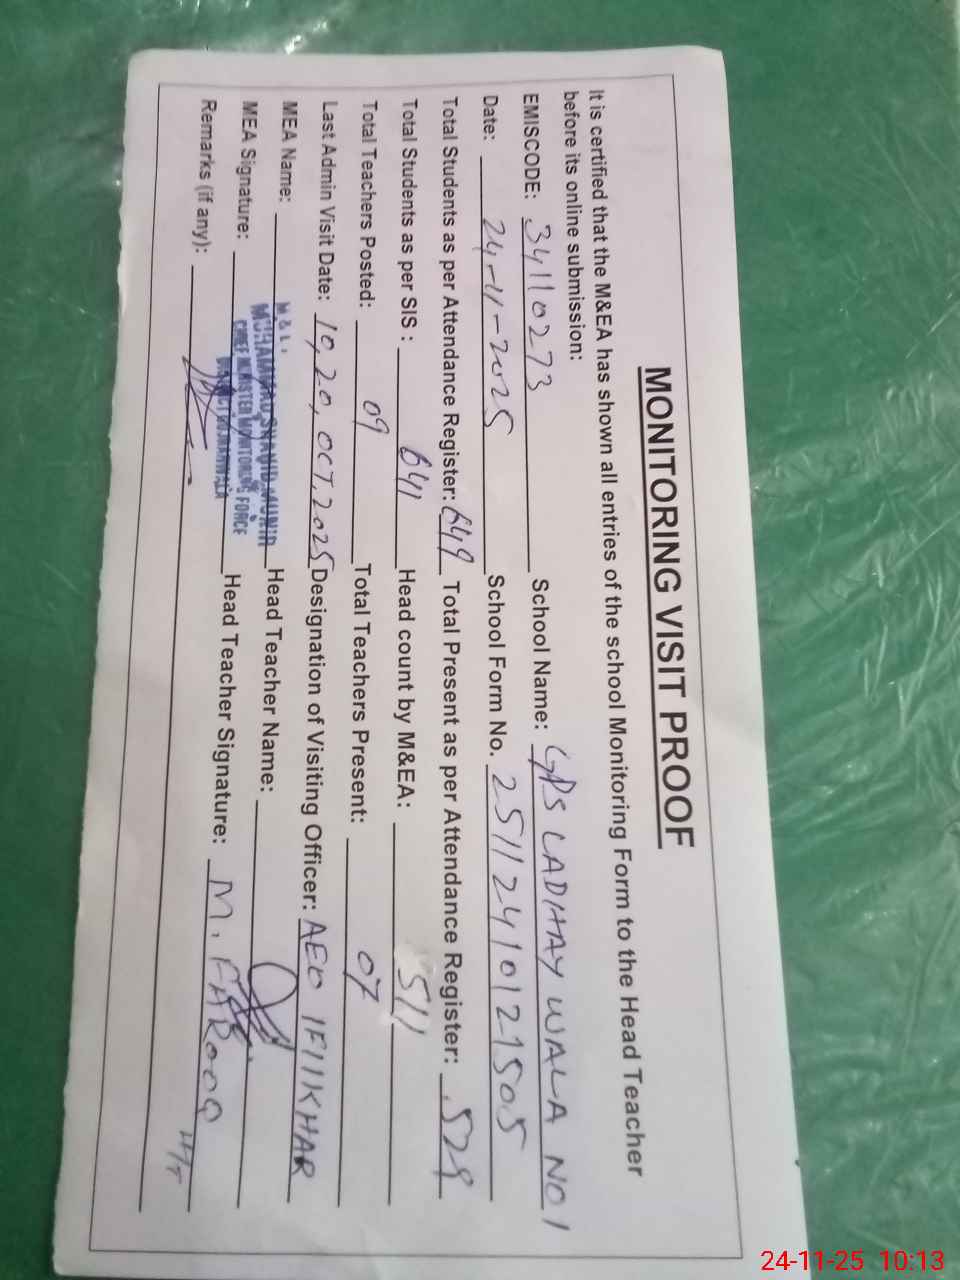 MONITORING VISIT PROOF
It is certified that the M&EA has shown all entries of the school Monitoring Form to the Head Teacher
before its online submission:
EMISCODE: 34110273 School Name: GPS LADHAY WALA NO1
Date: 24-11-2025 School Form No. 25112410121505
Total Students as per Attendance Register: 649 Total Present as per Attendance Register: 529
Total Students as per SIS: 641 Head count by M&EA: 511
Total Teachers Posted: 09 Total Teachers Present: 07
Last Admin Visit Date: 10,20, OCT.2025 Designation of Visiting Officer: AEO IFIIKHAR
MEA Name: MUHAMMAD SHAHID MUNIR Head Teacher Name:
MEA Signature: CHIEF MINISTER MONITORING FORCE Head Teacher Signature: M. FAROOQ
DISTRICT GUJRANWALA
Remarks (if any): H/T
24-11-25 10:13